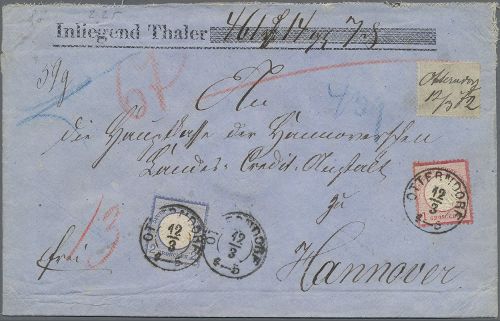 Inliegend Thaler 461 14 7
59g
67
Otterndorf
12/3 72
An
die Hauptkasse der Hannoverschen
Landes-Credit-Anstalt
zu
Hannover
frei
13
OTTERNDORF
12/3
4-5
OTTERNDORF
12/3
4-5
OTTERNDORF
12/3
4-5